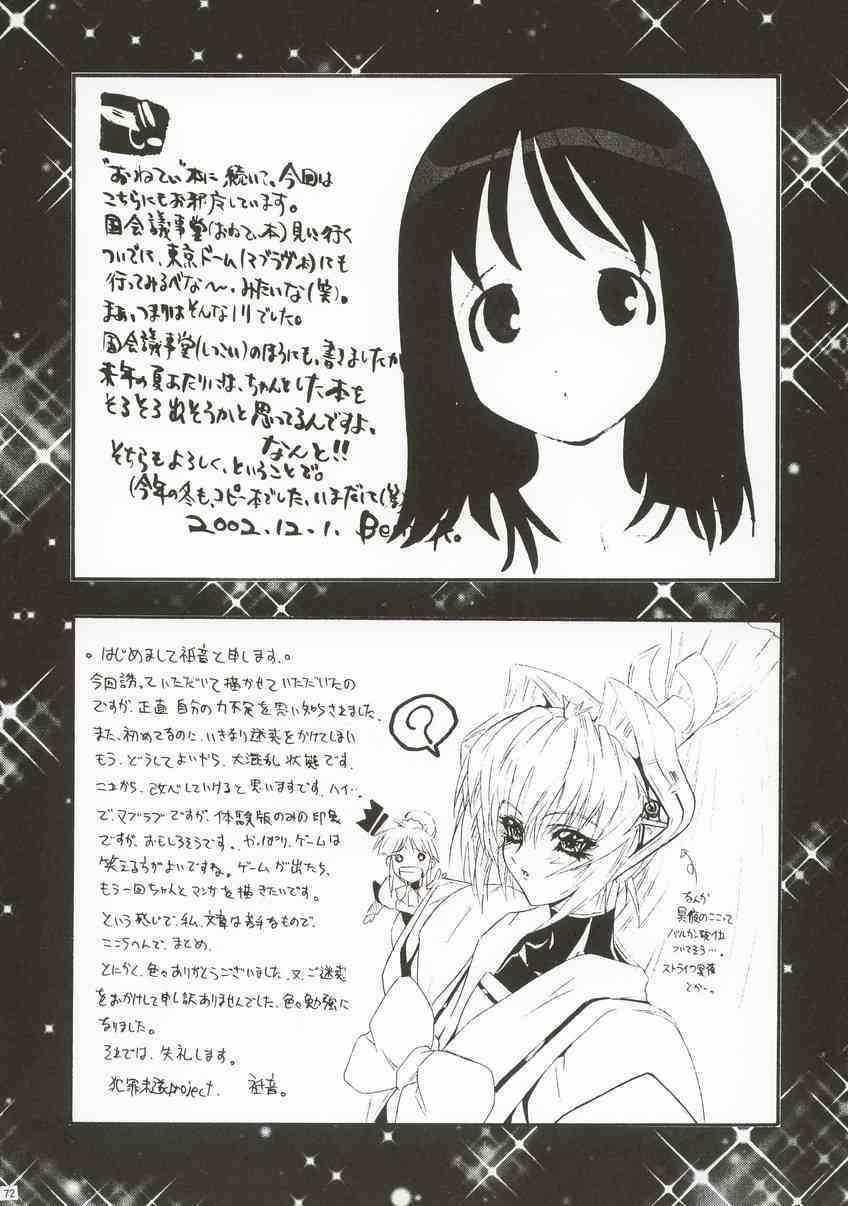 "おねてぃ"本に続いて、今回は
こちらにもお邪魔しています。
国会議事堂(おねてぃ本)見に行く
ついでに、東京ドーム(マブラヴ本)にも
行ってみるべな〜、みたいな(笑)。
まぁ、つまりはそんなノリでした。
国会議事堂(しつこい)のほうにも、書きましたが
来年の夏あたりには、ちゃんとした本を
そろそろ出そうかと思ってるんですよ、
なんと!!
そちらもよろしく、ということで。
(今年の冬も、コピー本でした、いまだに(笑)
2002.12.1.
。はじめまして祗音と申します。。
今回誘っていただいて描かせていただいたの
ですが、正直自分の力不足を思い知らされました、
また、初めてなのに、いきなり迷惑をかけてしまい
もう、どうしてよいやら、大混乱状態です、
これから、改心していけると思いますです、ハイ…
で、マブラブですが、体験版のみの印象
ですが、おもしろそうです、やっぱり、ゲームは
笑える方がよいですね。ゲームが出たら、
もう一回ちゃんとマンガを描きたいです。
という感じで、私、文章は苦手なもので、
ここらへんで、まとめ、
とにかく、色々ありがとうございました、又、ご迷惑
をおかけして申し訳ありませんでした、色々勉強に
なりました。
それでは、失礼します。
犯罪未遂project. 祗音。
?
なんか
冥夜のここって
バルカン砲位
ついてそう…。
ストライク冥夜
とか…。
72